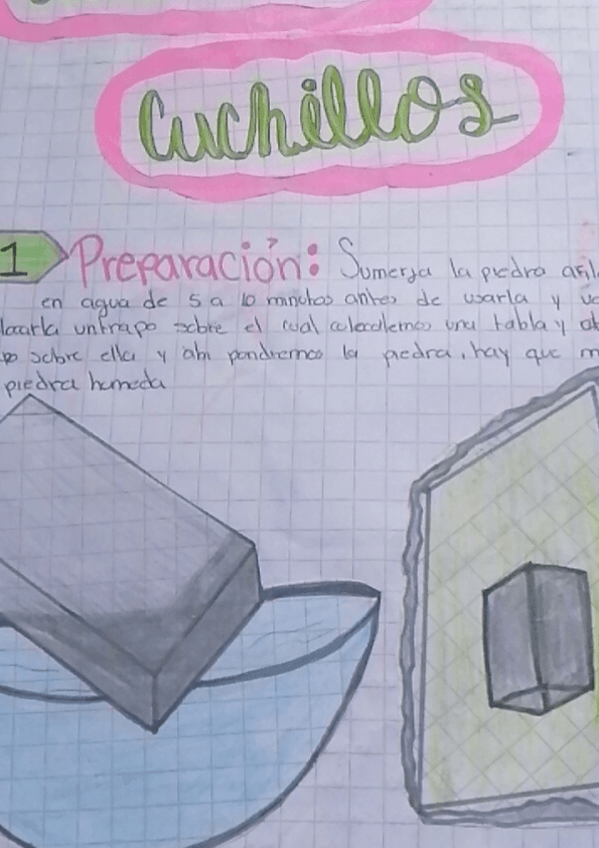 Cuchillos
1 Preparación: Sumerja la piedra afil
en agua de 5 a 10 minutos antes de usarla y
untrapo sobre el cual colocallemos una tabla y
sobre ella y ahi pondremos la piedra, hay que m
piedra humeda